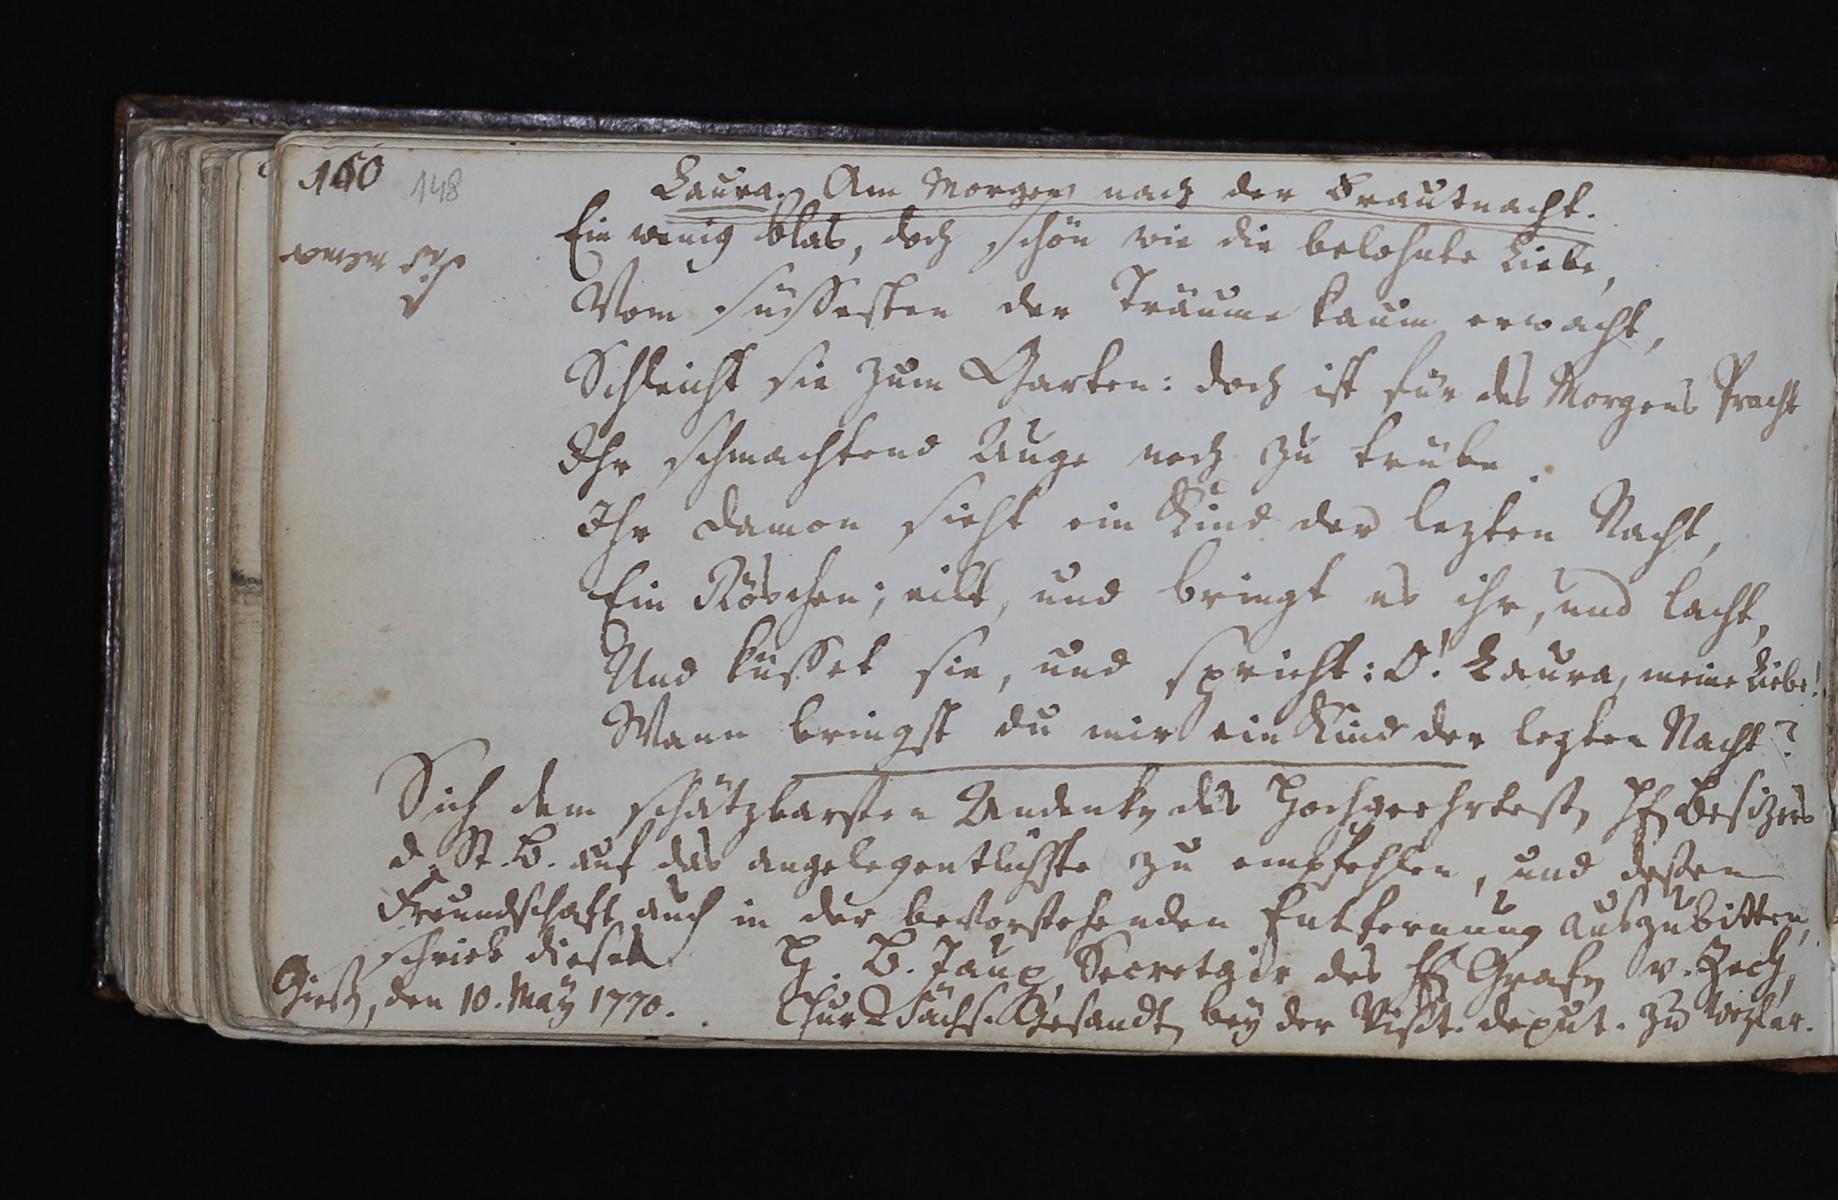 160 148
Laura. Am Morgen nach der Brautnacht.
Ein wenig blas, doch schön wie die belohnte Liebe,
Vom süssesten der Träume kaum erwacht,
Schleicht sie zum Garten: doch ist für des Morgens Pracht
Ihr schmachtend Auge noch zu trübe.
Ihr Damon sieht ein Kind der lezten Nacht,
Ein Röschen; eilt, und bringt es ihr, und lacht,
Und küsset sie, und spricht: O! Laura, meine Liebe!
Wann bringst du mir ein Kind der lezten Nacht?
Sich dem schätzbarsten Andenken des Hochgeehrtesten H. Besizers
d. St. B. auf das angelegentlichste zu empfehlen, und dessen
Freundschaft auch in der bevorstehenden Entfernung auszubitten,
schrieb dieses H. B. Jaup, Secretair des H. Grafen v. Zech,
Giesen, den 10. May 1770. Chur-Sächs. Gesandten bey der Visit. deput. zu Wezlar.